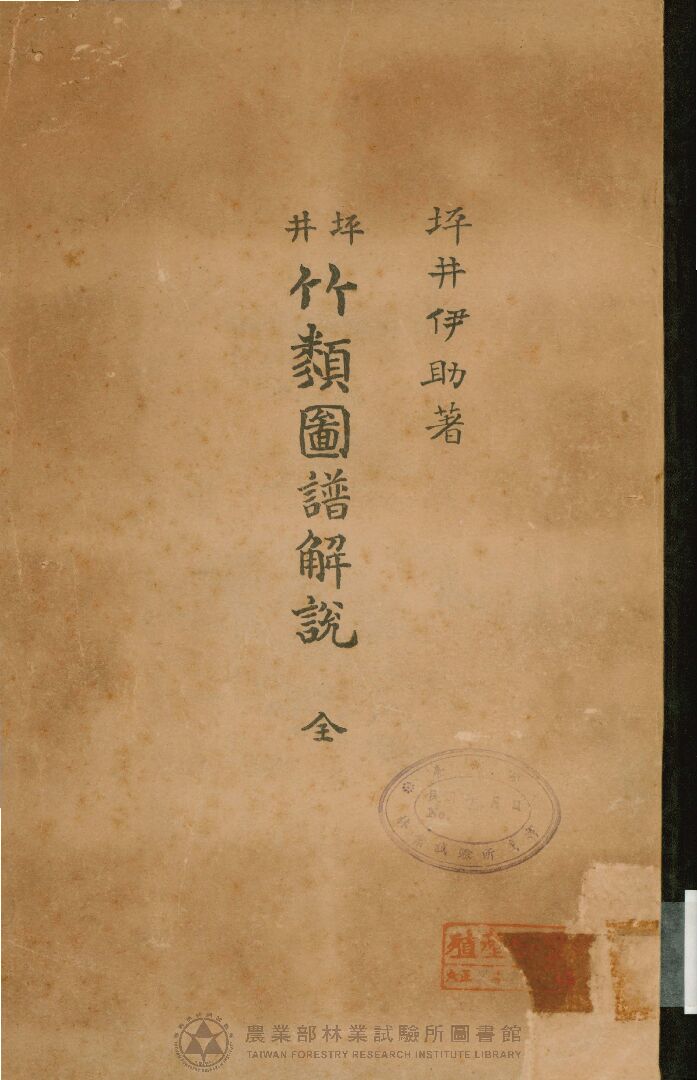 坪井伊助著
坪井
竹類圖譜解說
全
林業試驗所
No.
殖產
大正
農業部林業試驗所圖書館
TAIWAN FORESTRY RESEARCH INSTITUTE LIBRARY